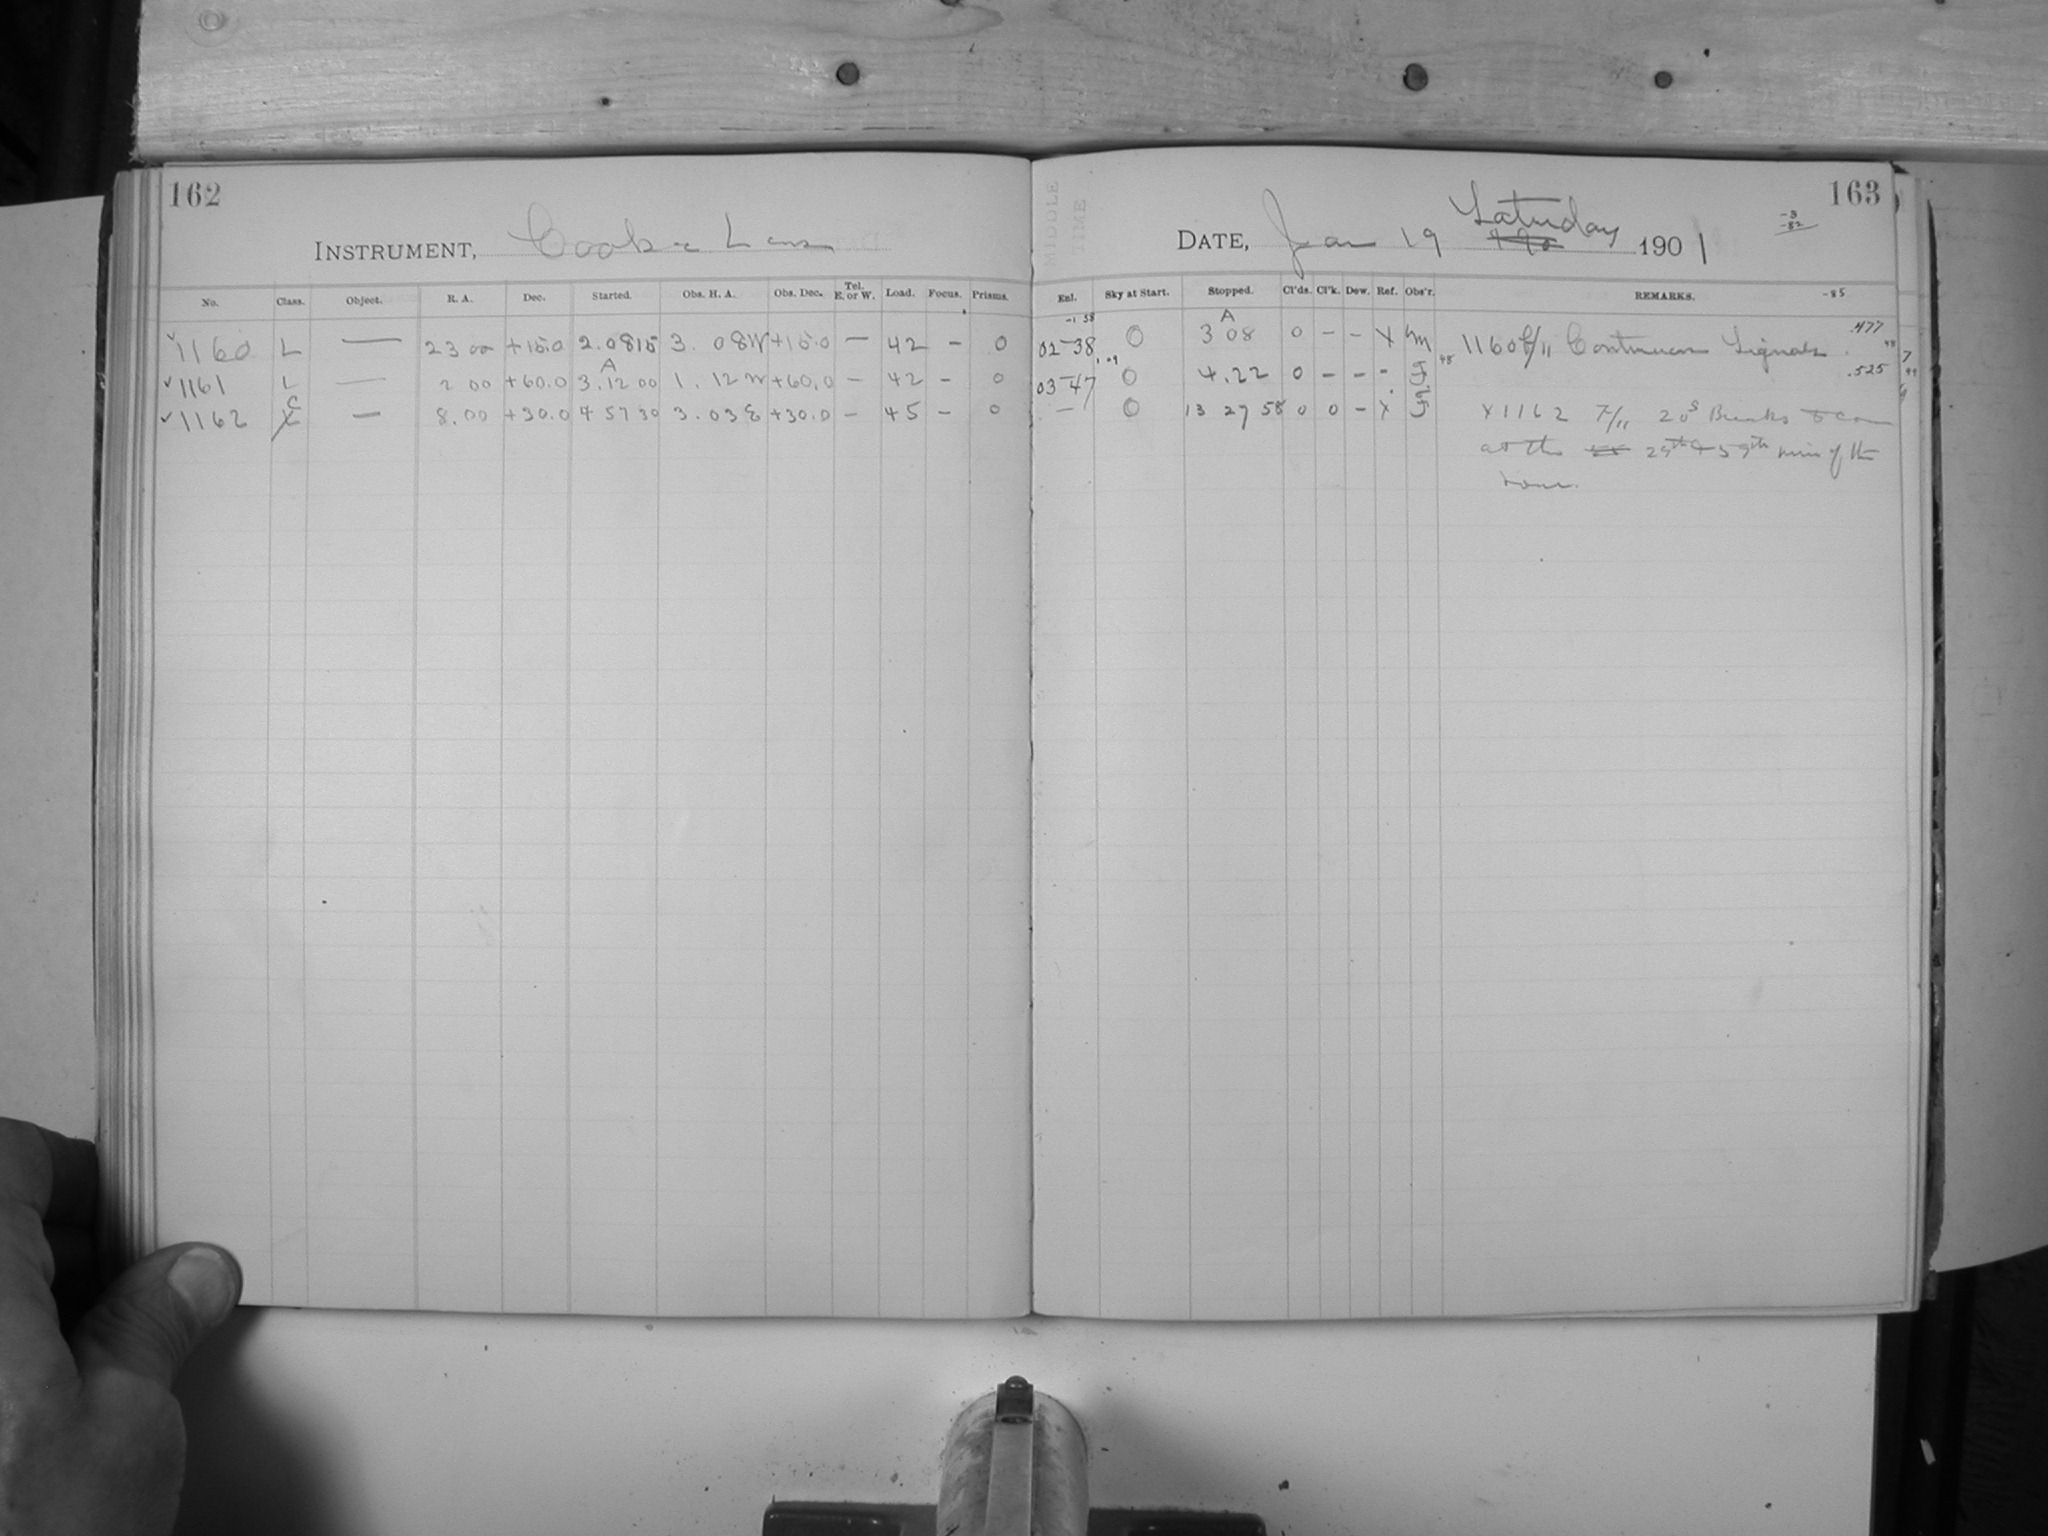 162
INSTRUMENT, Cooke Lens
No. Class. Object. R. A. Dec. Started. Obs. H. A. Obs. Dec. Tel. E. or W. Load. Focus. Prisms.
✓1160 L — 23 00 +15.0 2.0815 3. 08W +15.0 — 42 – 0
✓1161 L — 2 00 +60.0 3.12 00 A 1. 12W +60.0 – 42 – 0
✓1162 C — 8.00 +30.0 4 57 30 3.03E +30.0 – 45 – 0
163
MIDDLE TIME
DATE, Jan 19 Saturday 1901
-3
-82
-85
Exl. Sky at Start. Stopped. Cl'ds. Cl'k. Dew. Ref. Obs'r. REMARKS.
-1 58
02-38 0 A 3 08 0 – – X M 1160 F/11 Continuous Signals .477
1.09
03-47 0 4.22 0 – – - F .525
— 0 13 27 58 0 0 – X F X1162 F/11 20s Breaks to come
at the 29th & 59th min of the
hour.